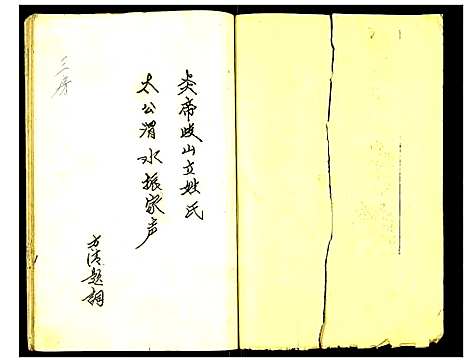 炎帝岐山立姓氏
太公渭水振家声
方清题词
三房